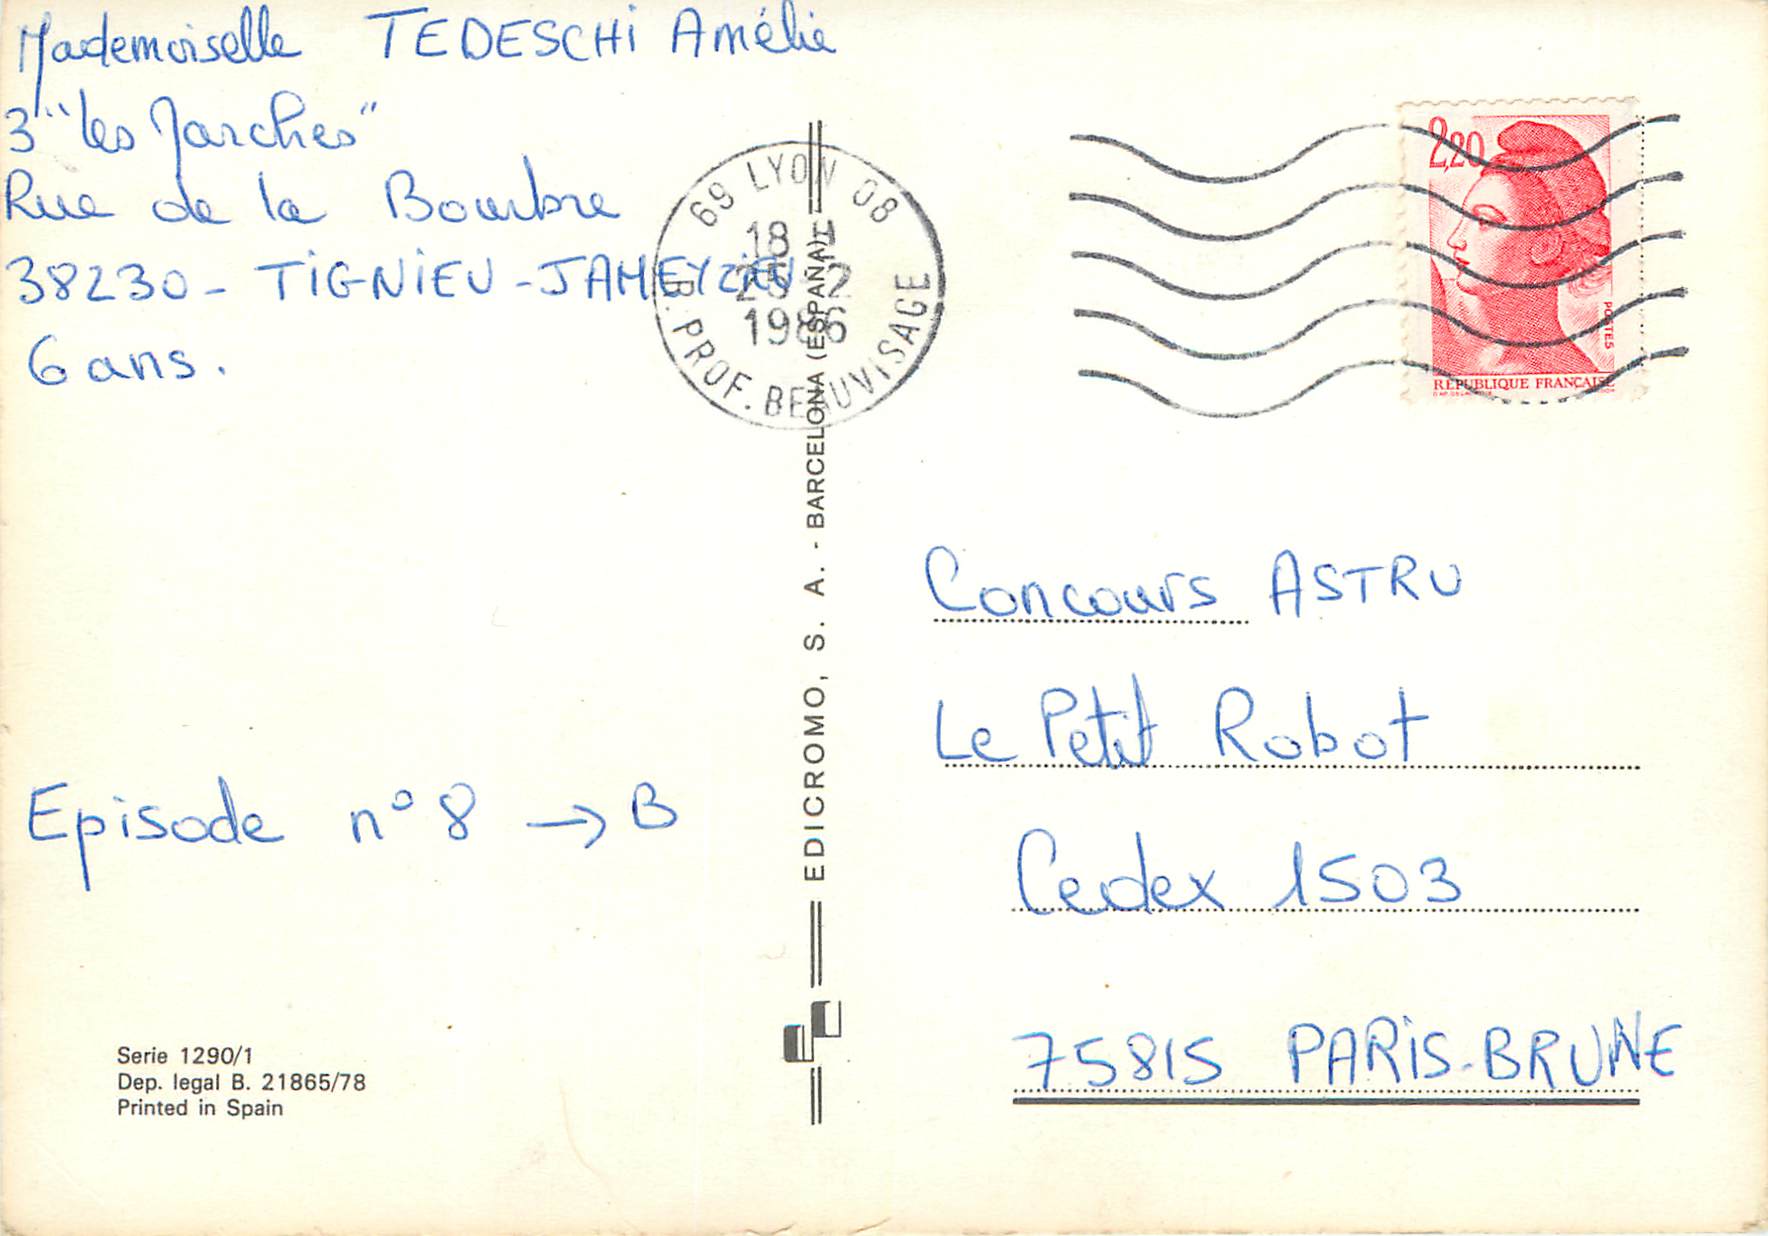 Mademoiselle TEDESCHi Amélie
3 "les Marches"
Rue de la Bourbre
38230 - TiGNiEU - JAMEYZiEU
6 ans.
Episode n° 8 → B
Serie 1290/1
Dep. legal B. 21865/78
Printed in Spain
EDICROMO, S. A. - BARCELONA (ESPAÑA)
69 LYON 08
18 H
1986
PROF. BEAUVISAGE
2,20
POSTES
REPUBLIQUE FRANÇAISE
Concours ASTRU
Le Petit Robot
Cedex 1503
75815 PARiS-BRUNE